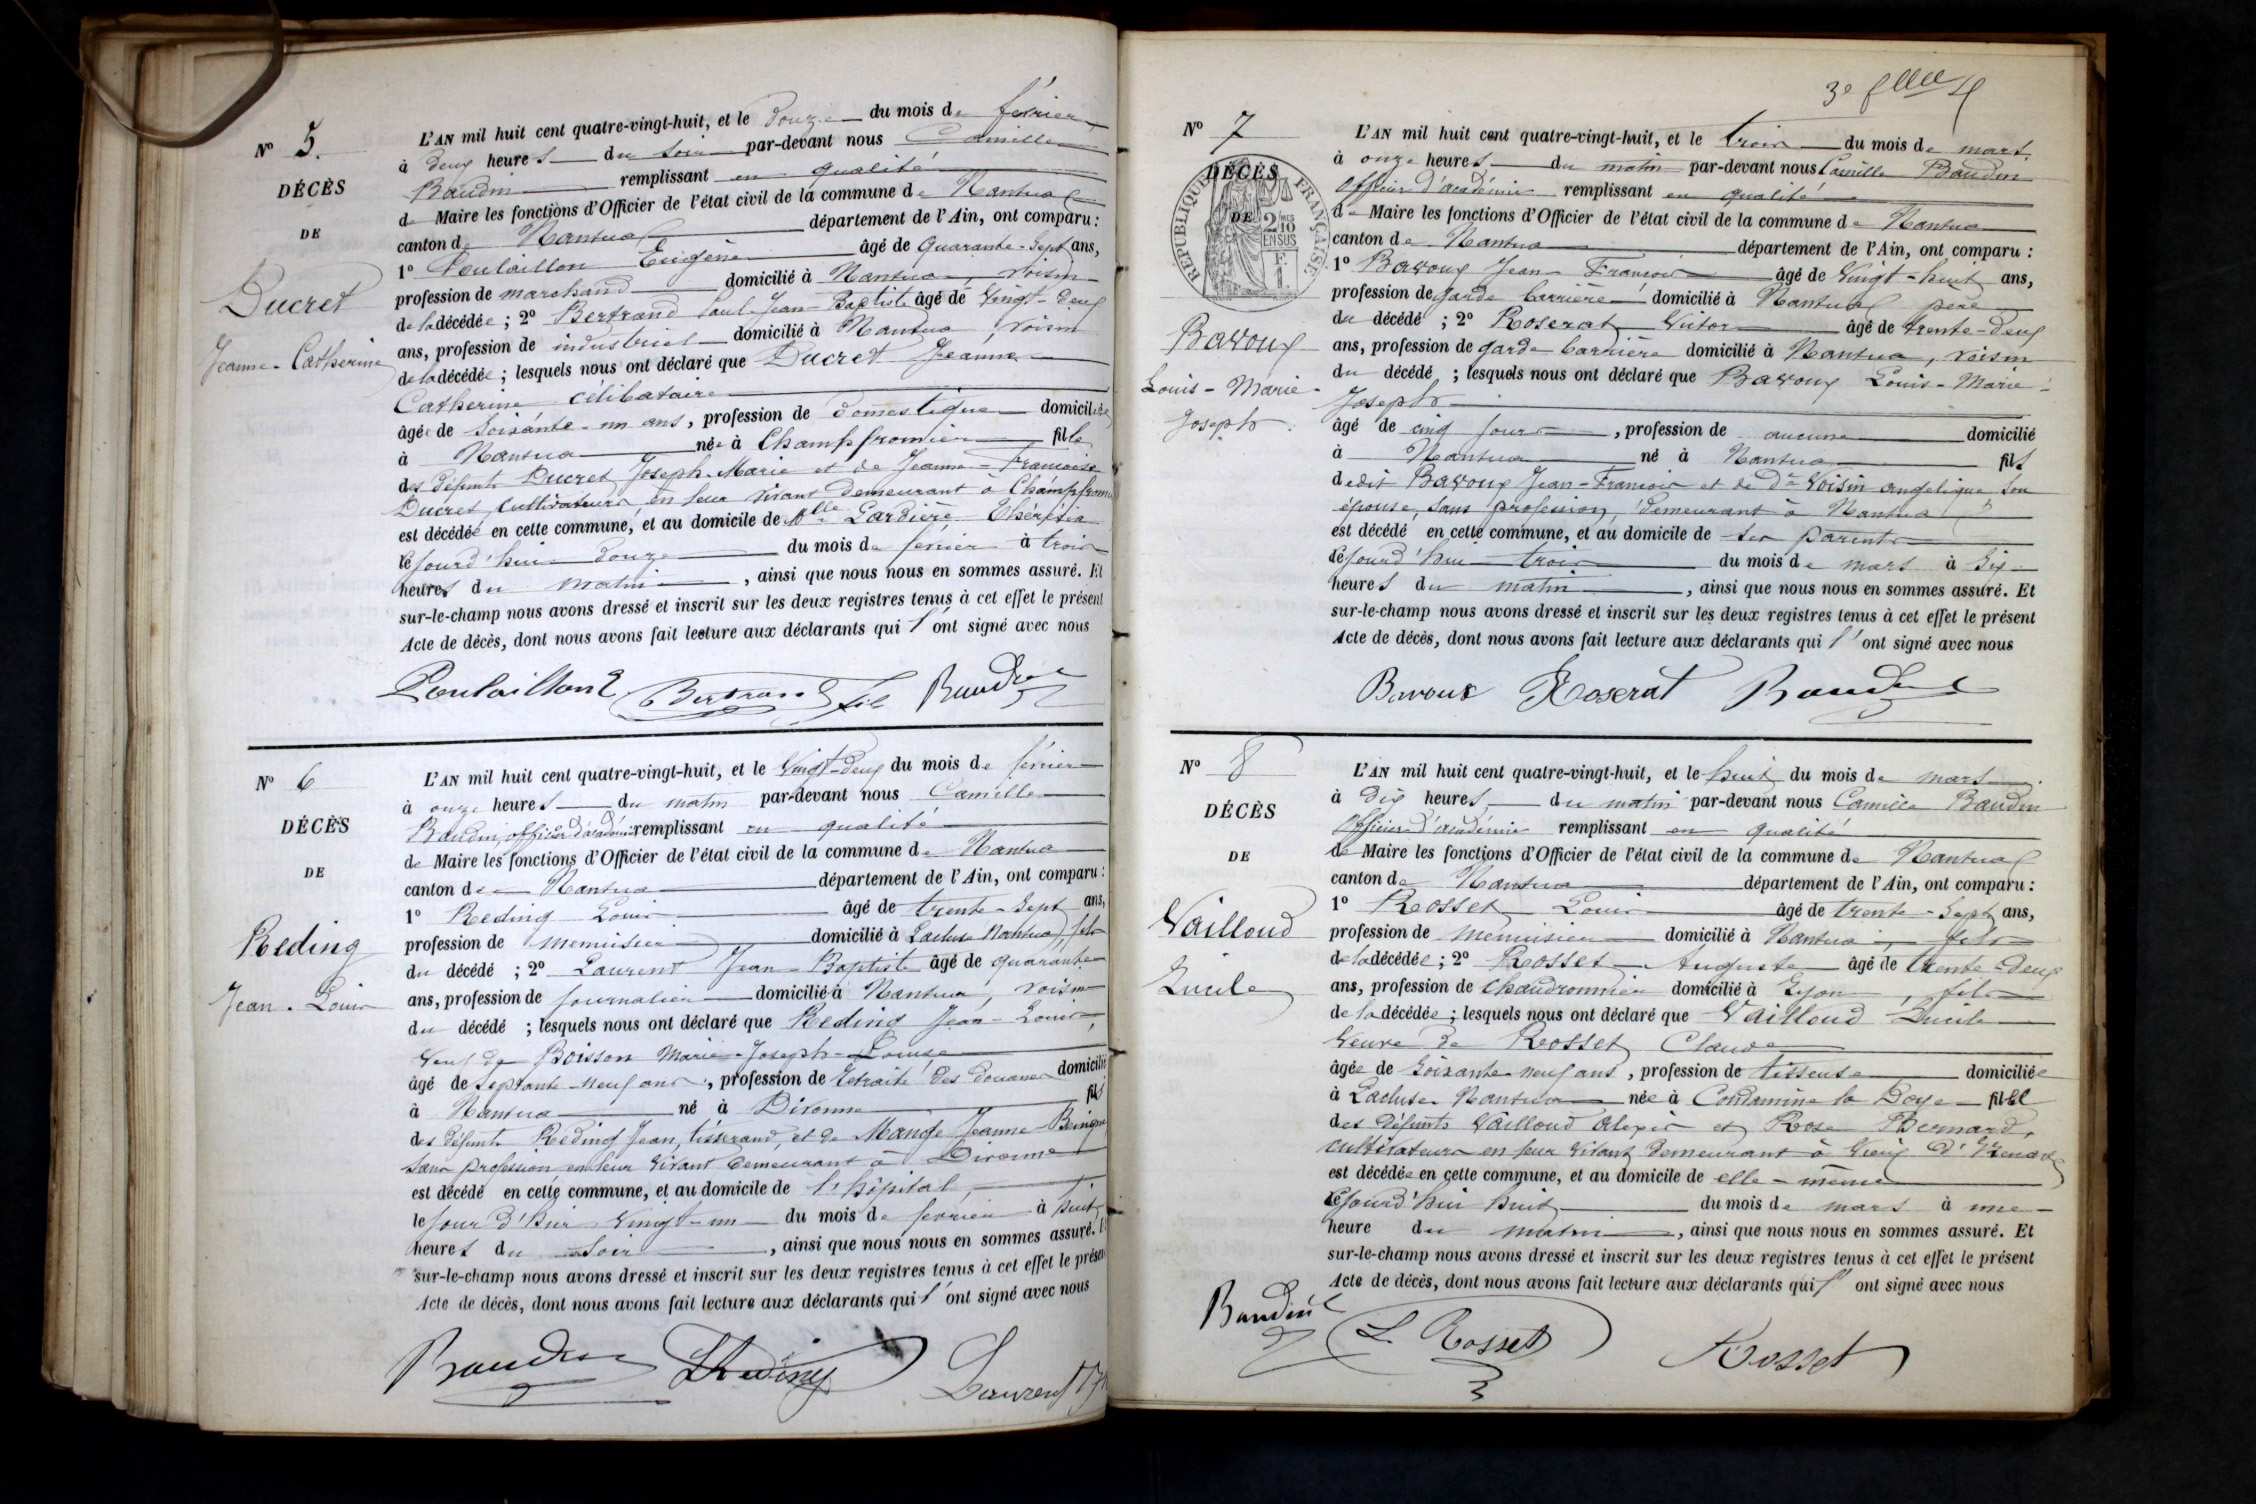 N° 5.
DÉCÈS
DE
Ducret
Jeanne-Catherine
L'AN mil huit cent quatre-vingt-huit, et le douze du mois de février
à deux heures du soir par-devant nous Camille
Baudin remplissant en qualité
de Maire les fonctions d'Officier de l'état civil de la commune de Nantua
canton de Nantua département de l'Ain, ont comparu :
1° Poulaillon Eugène âgé de quarante-sept ans,
profession de marchand domicilié à Nantua, voisin
de la décédée ; 2° Bertrand Paul-Jean-Baptiste âgé de vingt-deux
ans, profession de industriel domicilié à Nantua, voisin
de la décédée ; lesquels nous ont déclaré que Ducret Jeanne
Catherine célibataire
âgée de soixante-un ans, profession de domestique domiciliée
à Nantua née à Champfromier fille
des défunts Ducret Joseph-Marie et de Jeanne-Françoise
Ducret, cultivateurs en leur vivant demeurant à Champfromier
est décédée en cette commune, et au domicile de Mlle Lardière Thérésia
le jourd'hui douze du mois de février à trois
heures du matin, ainsi que nous nous en sommes assuré. Et
sur-le-champ nous avons dressé et inscrit sur les deux registres tenus à cet effet le présent
Acte de décès, dont nous avons fait lecture aux déclarants qui l'ont signé avec nous
Poulaillon E Bertrand fils Baudin
N° 6
DÉCÈS
DE
Reding
Jean-Louis
L'AN mil huit cent quatre-vingt-huit, et le vingt-deux du mois de février
à onze heures du matin par-devant nous Camille
Baudin, officier d'académie remplissant en qualité
de Maire les fonctions d'Officier de l'état civil de la commune de Nantua
canton de Nantua département de l'Ain, ont comparu :
1° Reding Louis âgé de trente-sept ans,
profession de menuisier domicilié à Lacluse Nantua, fils
du décédé ; 2° Laurent Jean-Baptiste âgé de quarante
ans, profession de journalier domicilié à Nantua, voisin
du décédé ; lesquels nous ont déclaré que Reding Jean-Louis,
veuf de Boisson Marie-Joseph-Louise
âgé de septante-neuf ans, profession de retraité des douanes domicilié
à Nantua né à Divonne fils
des défunts Reding Jean, tisserand, et de Mange Jeanne Bénigne
sans profession en leur vivant demeurant à Divonne
est décédé en cette commune, et au domicile de l'hôpital,
le jour d'hier vingt-un du mois de février à huit
heures du soir, ainsi que nous nous en sommes assuré. Et
sur-le-champ nous avons dressé et inscrit sur les deux registres tenus à cet effet le présent
Acte de décès, dont nous avons fait lecture aux déclarants qui l'ont signé avec nous
Baudin L Reding Laurent
3e flle
N° 7
DÉCÈS
DE
RÉPUBLIQUE FRANÇAISE
2/10 MES
EN SUS
F.
1
Bavoux
Louis-Marie-
Joseph.
L'AN mil huit cent quatre-vingt-huit, et le trois du mois de mars.
à onze heures du matin par-devant nous Camille Baudin
Officier d'académie remplissant en qualité
de Maire les fonctions d'Officier de l'état civil de la commune de Nantua
canton de Nantua département de l'Ain, ont comparu :
1° Bavoux Jean François âgé de vingt-huit ans,
profession de garde barrière domicilié à Nantua père
du décédé ; 2° Roserat Victor âgé de trente-deux
ans, profession de garde barrière domicilié à Nantua, voisin
du décédé ; lesquels nous ont déclaré que Bavoux Louis-Marie-
Joseph
âgé de cinq jours, profession de aucune domicilié
à Nantua né à Nantua fils
dedit Bavoux Jean-François et de De Voisin Angélique son
épouse, sans profession, demeurant à Nantua
est décédé en cette commune, et au domicile de ses parents
le jourd'hui trois du mois de mars à six
heures du matin, ainsi que nous nous en sommes assuré. Et
sur-le-champ nous avons dressé et inscrit sur les deux registres tenus à cet effet le présent
Acte de décès, dont nous avons fait lecture aux déclarants qui l'ont signé avec nous
Bavoux Roserat Baudin
N° 8
DÉCÈS
DE
Vailloud
Lucile
L'AN mil huit cent quatre-vingt-huit, et le huit du mois de mars.
à dix heures du matin par-devant nous Camille Baudin
Officier d'académie remplissant en qualité
de Maire les fonctions d'Officier de l'état civil de la commune de Nantua
canton de Nantua département de l'Ain, ont comparu :
1° Rosset Louis âgé de trente-sept ans,
profession de menuisier domicilié à Nantua, fils
de la décédée ; 2° Rosset Auguste âgé de trente-deux
ans, profession de chaudronnier domicilié à Lyon, fils
de la décédée ; lesquels nous ont déclaré que Vailloud Lucile
veuve de Rosset Claude
âgée de soixante-neuf ans, profession de tisseuse domiciliée
à Lacluse Nantua née à Condamine la Doye fille
des défunts Vailloud Alexis et Rose Bernard,
cultivateurs en leur vivant demeurant à Vieux d'Izenave
est décédée en cette commune, et au domicile de elle-même
le jourd'hui huit du mois de mars à une
heure du matin, ainsi que nous nous en sommes assuré. Et
sur-le-champ nous avons dressé et inscrit sur les deux registres tenus à cet effet le présent
Acte de décès, dont nous avons fait lecture aux déclarants qui l'ont signé avec nous
Baudin L. Rosset Rosset